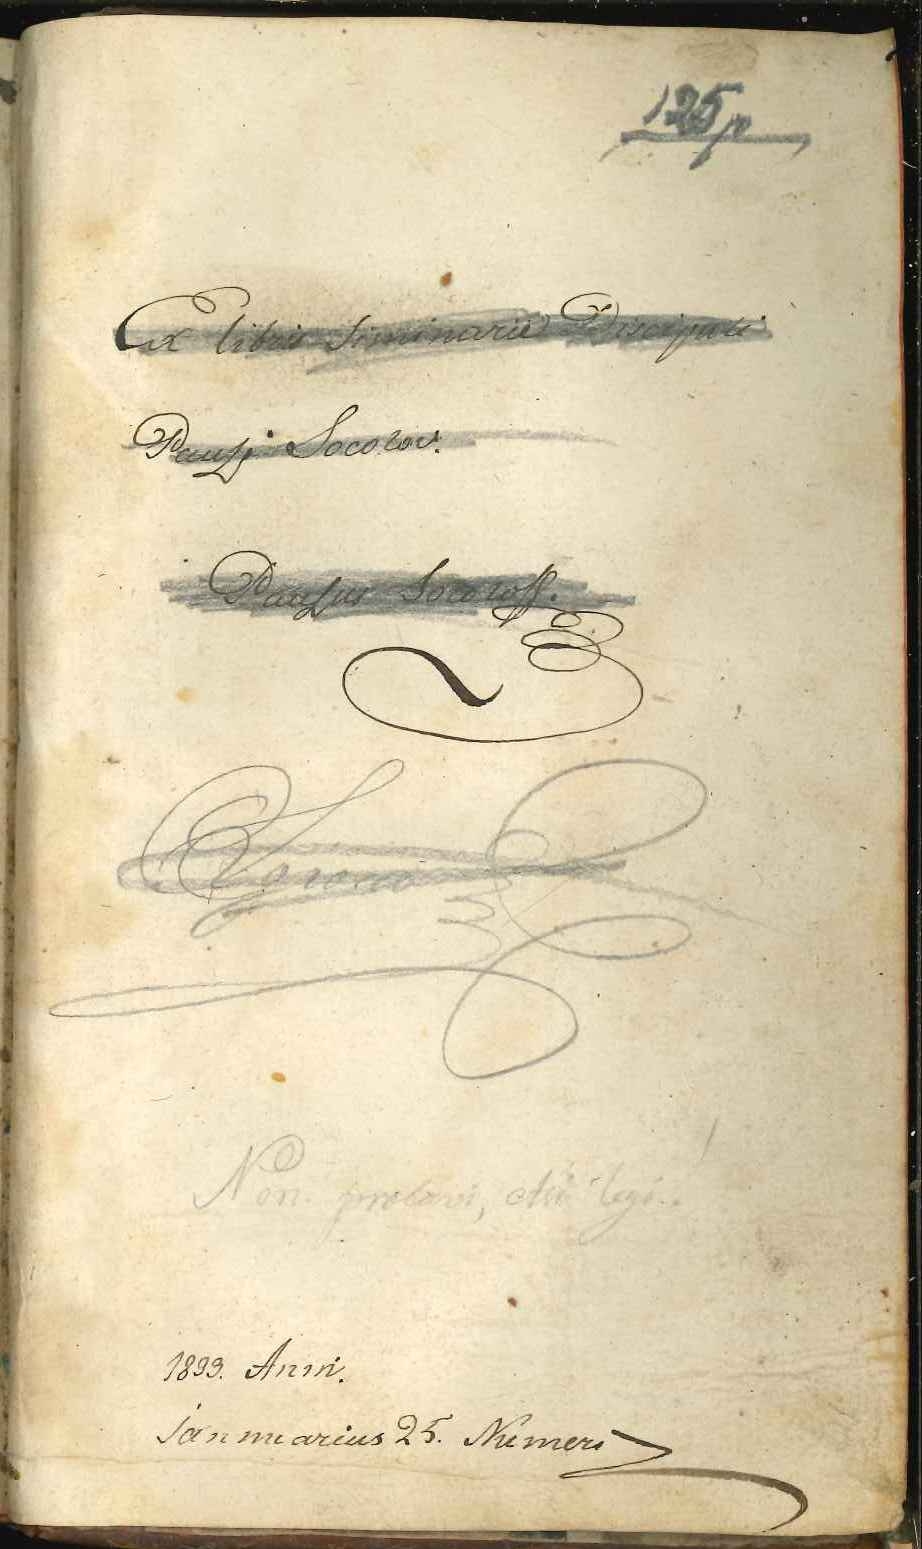 125 p
Ex libris Seminarii Discipuli
Pauli Socolov.
Paulus Socoloff.
Non probavi, etsi legi..!
1833. Anni.
Jannuarius 25. Numero